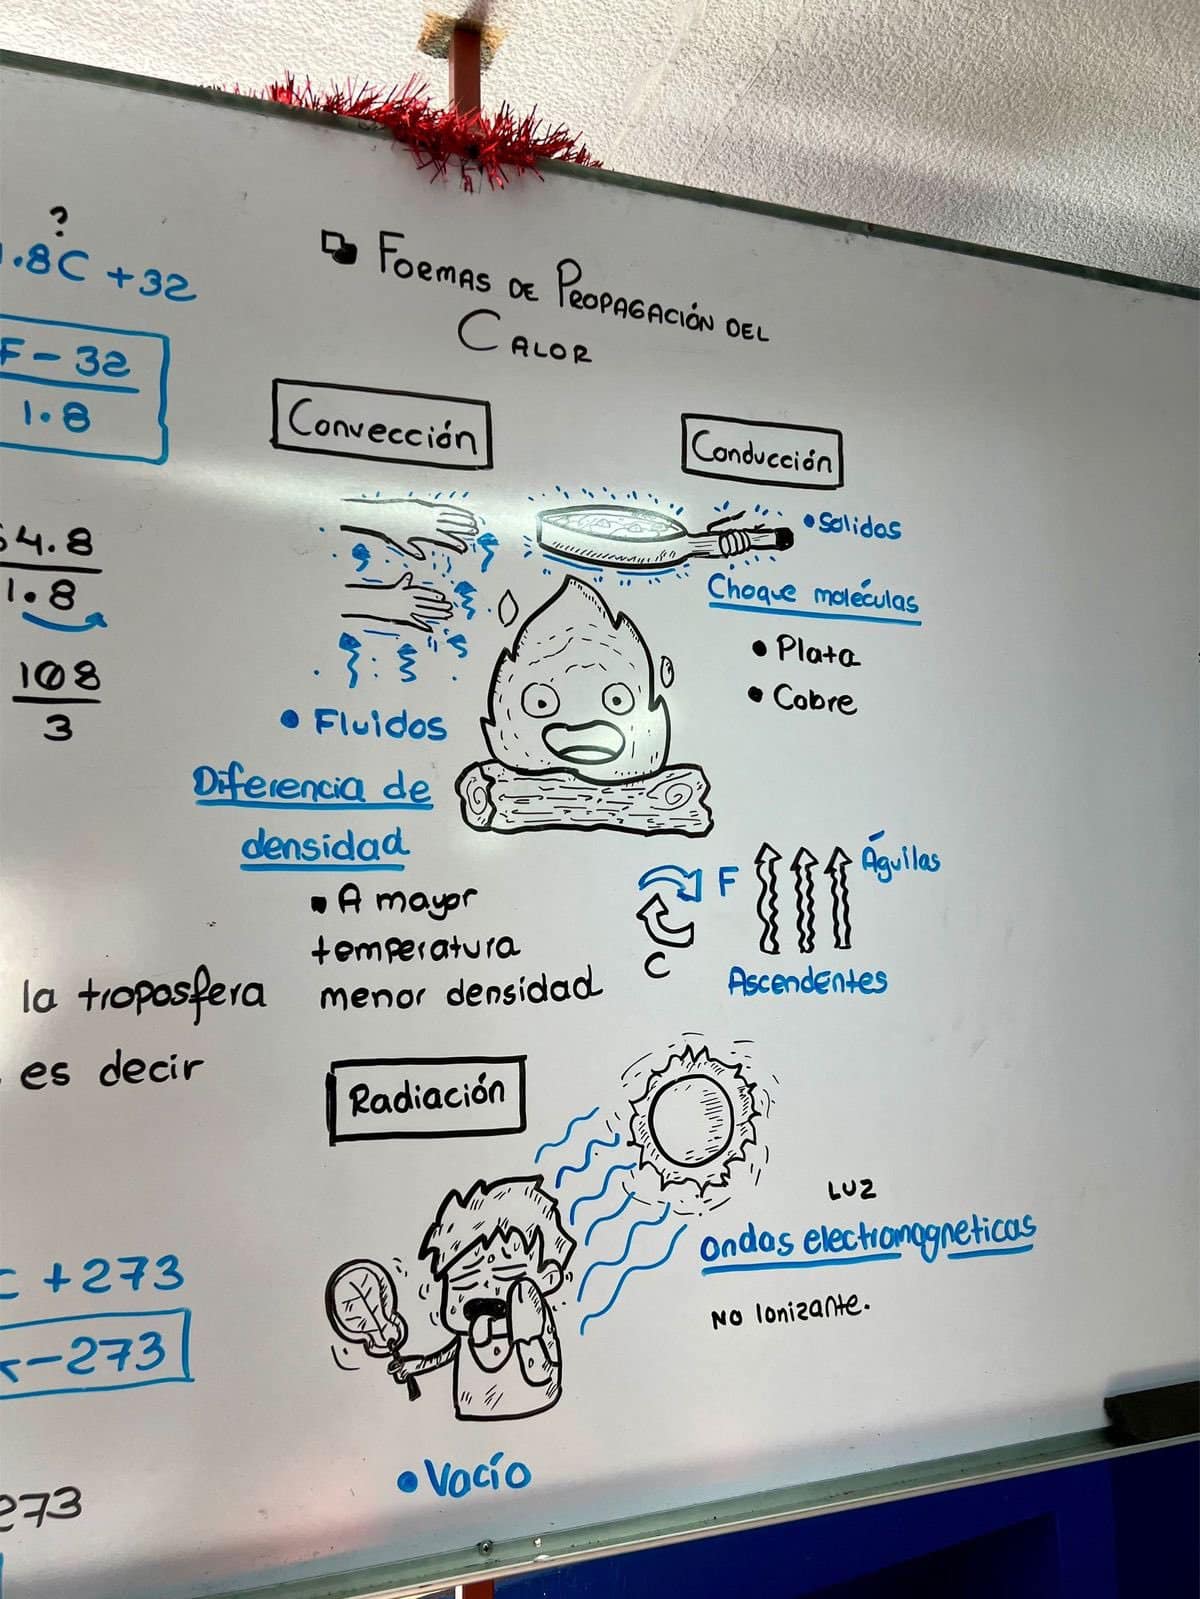 ?
.8C +32
F - 32
1.8
4.8
1.8
108
3
la troposfera
es decir
+273
-273
273
Formas de Propagación del
Calor
Convección
• Fluidos
Diferencia de
densidad
▪ A mayor
temperatura
menor densidad
Conducción
• Solidos
Choque moléculas
• Plata
• Cobre
F
C
Águilas
Ascendentes
Radiación
LUZ
ondas electromagneticas
No Ionizante.
• Vacío